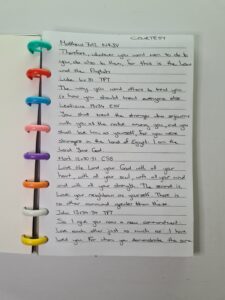 COURTESY
Matthew 7:12 NKJV
Therefore, whatever you want men to do to
you, do also to them, for this is the Law
and the Prophets
Luke 6:31 TPT
The way you want others to treat you
is how you should treat everyone else
Leviticus 19:34 ESV
You shall treat the stranger who sojourns
with you as the native among you, and you
shall love him as yourself, for you were
strangers in the land of Egypt. I am the
Lord Your God.
Mark 12:30-31 CSB
Love the Lord your God with all your
heart, with all your soul, with all your mind
and with all your strength. The second is
Love your neighbour as yourself. There is
no other command greater than these.
John 13:34-35 TPT
So I give you now a new commandment
Love each other just as much as I have
loved you. For when you demonstrate the same